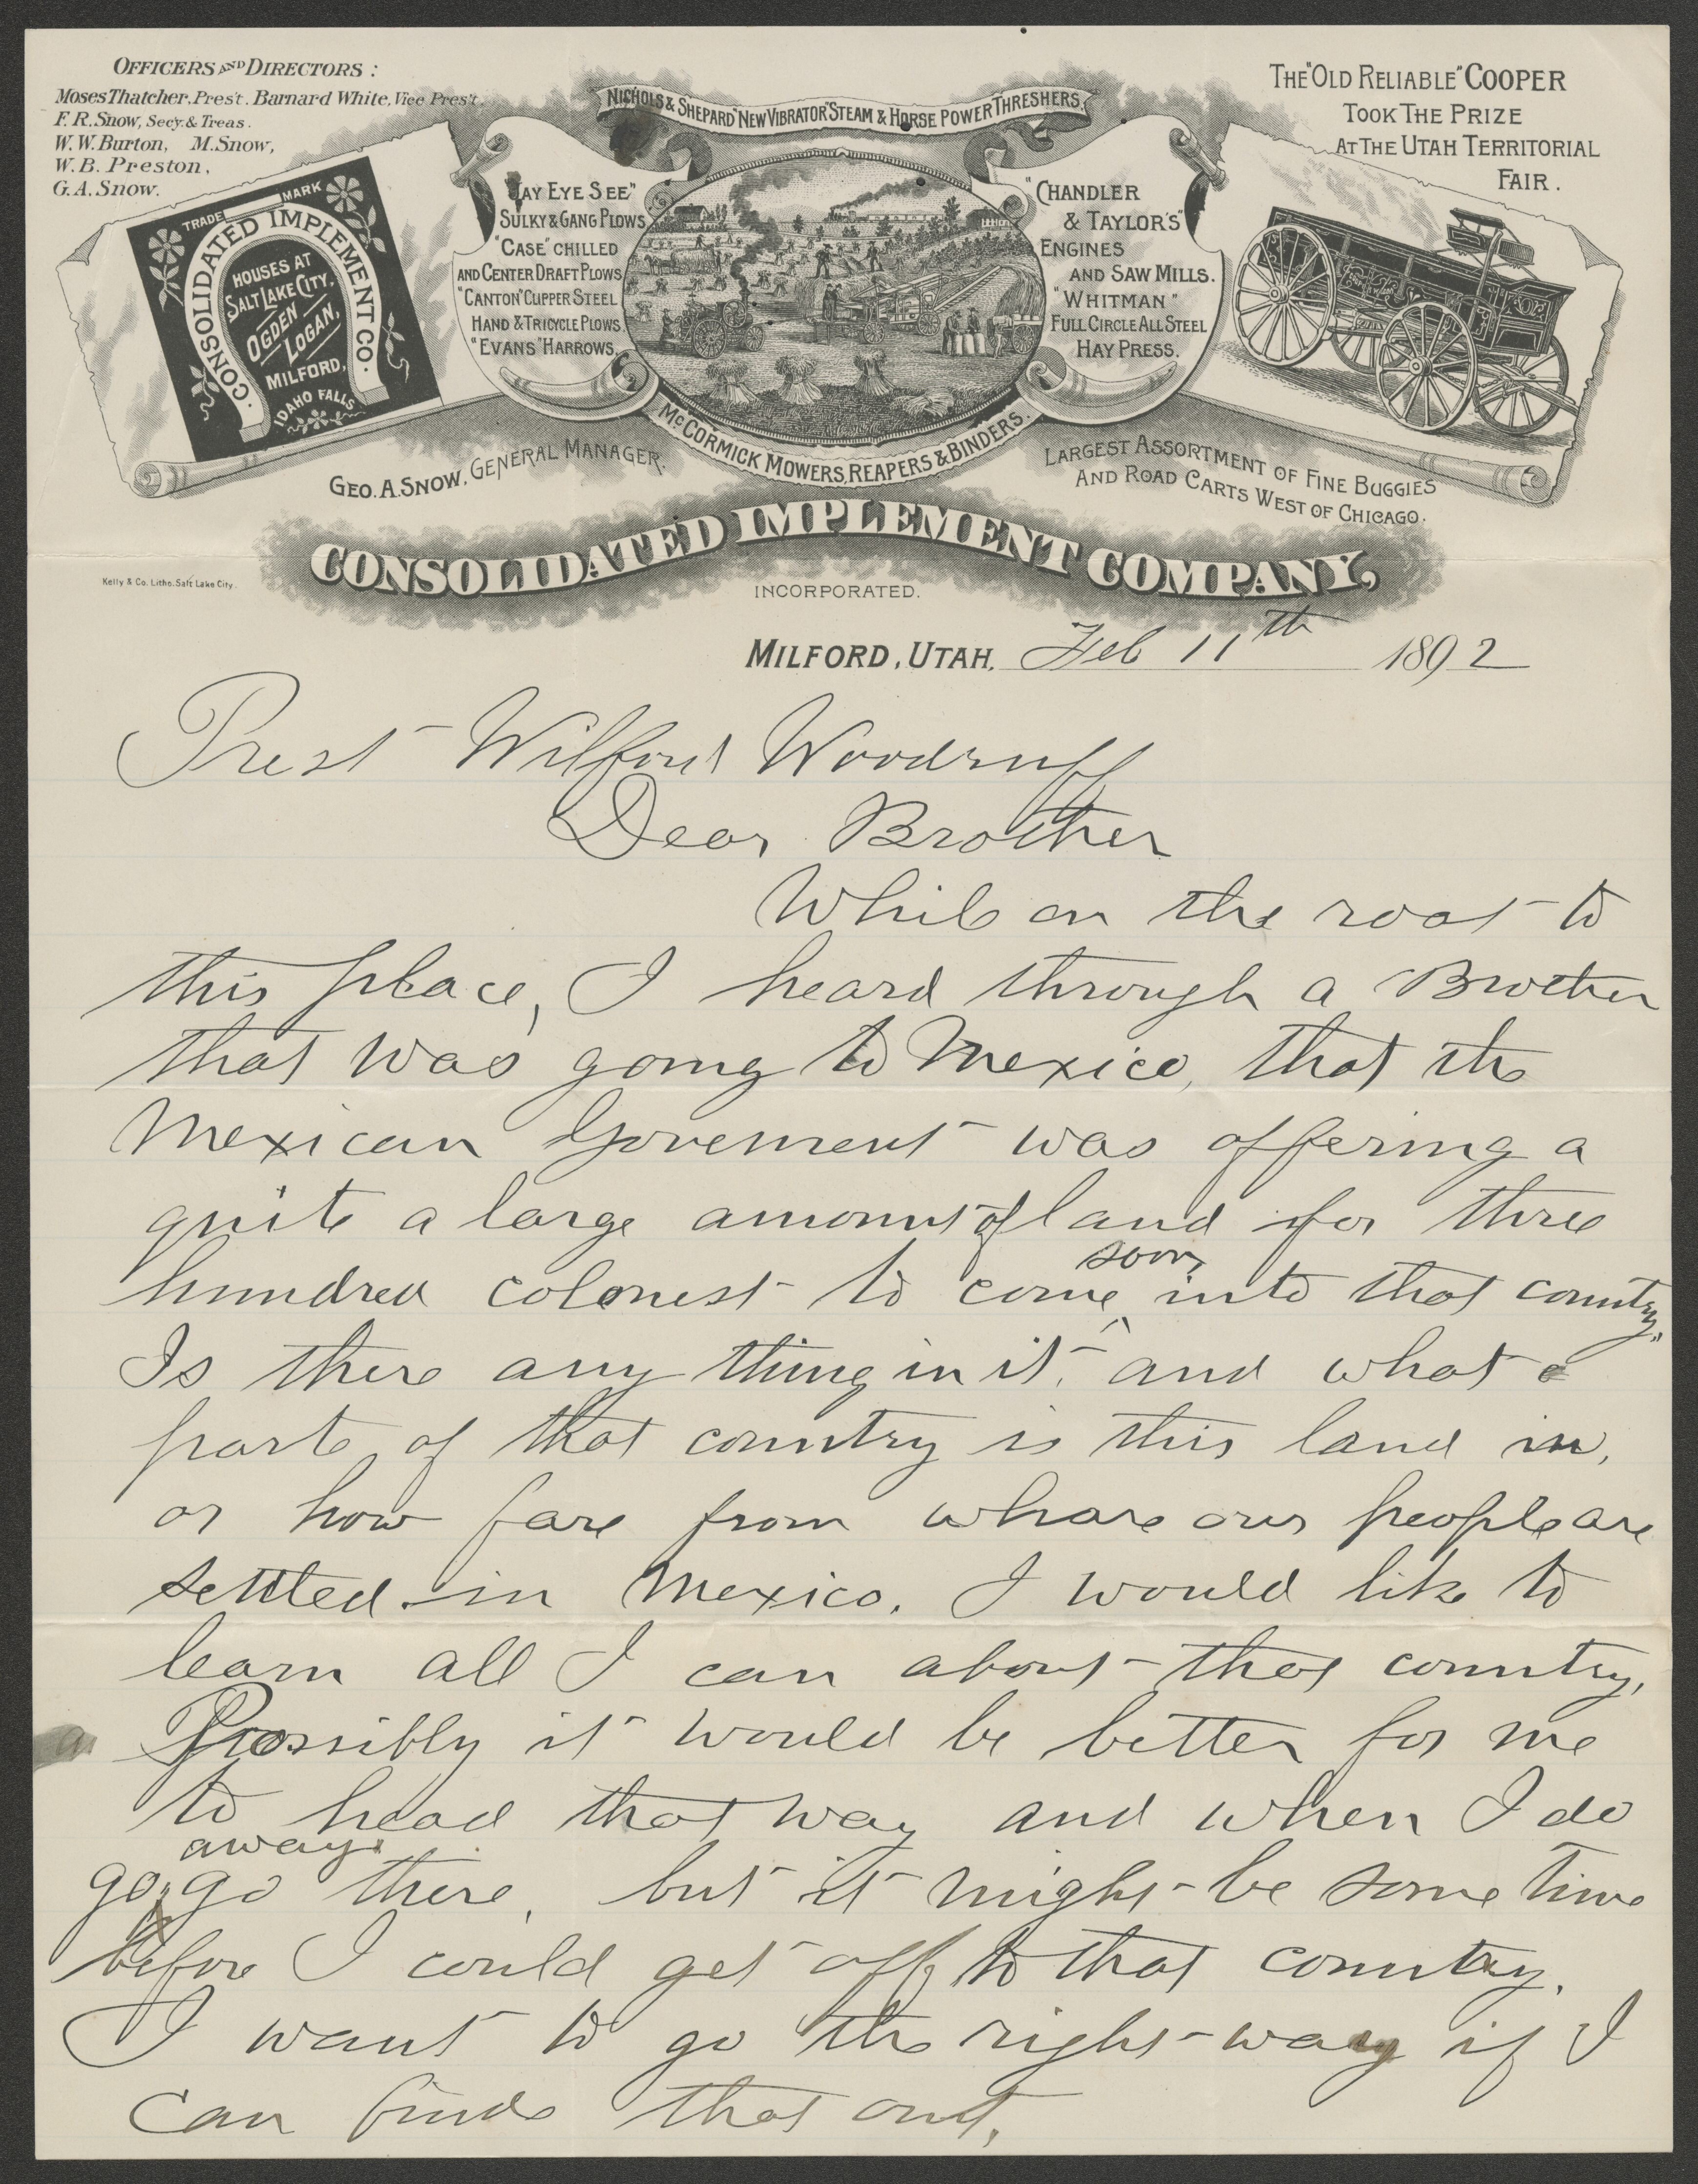 OFFICERS AND DIRECTORS :
Moses Thatcher. Pres't. Barnard White, Vice Pres't.
F. R. Snow, Sec'y. & Treas.
W. W. Burton, M. Snow,
W. B. Preston,
G. A. Snow.
TRADE MARK
CONSOLIDATED IMPLEMENT CO.
HOUSES AT
SALT LAKE CITY,
OGDEN
LOGAN,
MILFORD,
IDAHO FALLS
NICHOLS & SHEPARD "NEW VIBRATOR" STEAM & HORSE POWER THRESHERS.
"JAY EYE SEE"
SULKY & GANG PLOWS
"CASE" CHILLED
AND CENTER DRAFT PLOWS
"CANTON" CLIPPER STEEL
HAND & TRICYCLE PLOWS
"EVANS" HARROWS.
"CHANDLER
& TAYLOR'S"
ENGINES
AND SAW MILLS.
"WHITMAN"
FULL CIRCLE ALL STEEL
HAY PRESS.
McCORMICK MOWERS, REAPERS & BINDERS.
THE "OLD RELIABLE" COOPER
TOOK THE PRIZE
AT THE UTAH TERRITORIAL
FAIR.
GEO. A. SNOW, GENERAL MANAGER.
LARGEST ASSORTMENT OF FINE BUGGIES
AND ROAD CARTS WEST OF CHICAGO.
CONSOLIDATED IMPLEMENT COMPANY,
INCORPORATED.
Kelly & Co. Litho. Salt Lake City.
MILFORD, UTAH, Feb 11th 1892
Prest Wilford Woodruff
Dear Brother
While on the roat to
this place, I heard through a Brother
that was going to Mexico, that the
Mexican Goverment was offering a
quite a large amount of land for three
hundred colonest to come soon into that country.
Is there any thing in it, and what
parte of that country is this land in,
or how fare from whare our people are
settled in Mexico. I would like to
learn all I can about that country,
Possibly it would be better for me
to head that way and when I do
go away go there, but it might be some time
before I could get off to that country.
I want to go the right way if I
can finde that out,